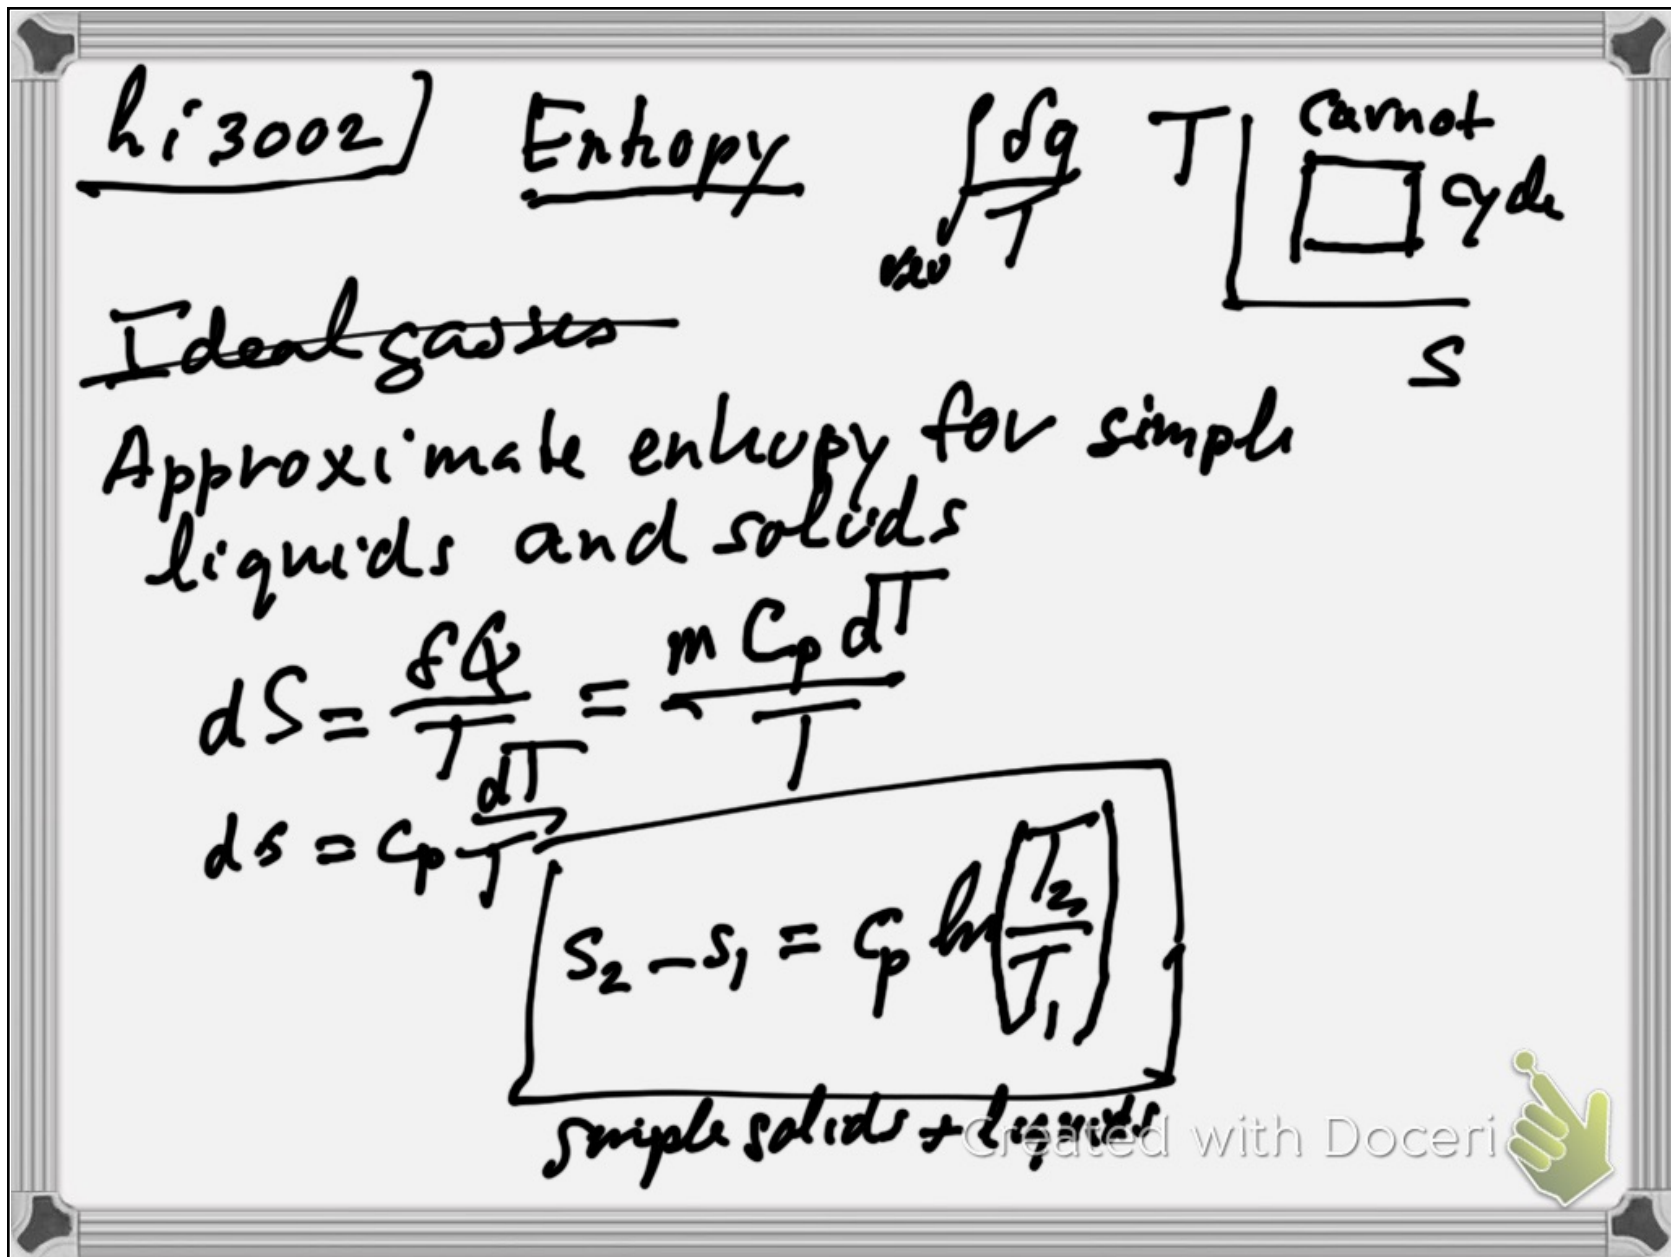 hi3002] Entropy ∫rev δq/T T carnot
cycle
S
Ideal gasses
Approximate entropy for simple
liquids and solids
dS = δQ/T = m Cp dT/T
ds = Cp dT/T
s₂ - s₁ = Cp ln(T₂/T₁)
simple solids + liquids
Created with Doceri